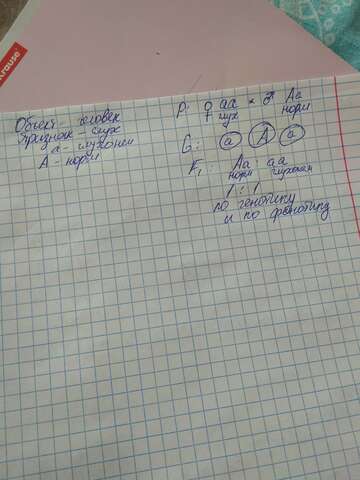 Krause
Объект - человек
Признак - слух
а - глухонем
А - норм
P: ♀ аа × ♂ Аа
глух норм
G: а А а
F₁ Аа : аа
норм глухонем
1 : 1
по генотипу
и по фенотипу